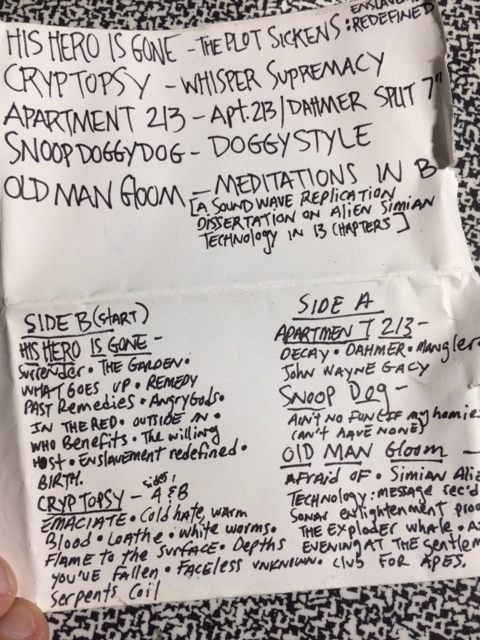 HIS HERO IS GONE - THE PLOT SICKENS: ENSLAVEM
REDEFINED
CRYPTOPSY - WHISPER SUPREMACY
APARTMENT 213 - APT.213/DAHMER SPLIT 7"
SNOOP DOGGY DOG - DOGGYSTYLE
OLD MAN GlOOM - MEDITATIONS IN B
[A SOUND WAVE REPLICATION
DISSERTATION ON ALIEN SIMIAN
TECHNOLOGY IN 13 CHAPTERS]
SIDE B (START)
HIS HERO IS GONE -
Surrender • THE GARDEN •
WHAT GOES UP • REMEDY
PAST Remedies • Angry Gods •
IN THE RED • OUTSIDE IN •
WHO Benefits • The willing
Host • Enslavement redefined •
BIRTH.
CRYPTOPSY - sides! A & B
EMACIATE • Cold hate, warm
Blood • Loathe • white worms •
Flame to the surface • Depths
YOU'VE Fallen • Faceless unknown •
Serpents Coil
SIDE A
APARTMENT 213 -
DECAY • DAHMER • Mangler
John WAYNE GACY
SNOOP DOG -
AIN'T NO FUN (IF my homie
(AN'T HAVE NONE)
OlD MAN Gloom -
AFraid OF • Simian Alie
TECHNOLOGY: message rec'd
Sonar enlightenment proo
THE Exploder whale • A
EVENING AT THE Gentlem
Club FOR APES.